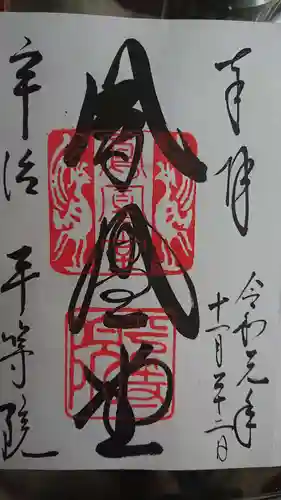 奉拝
令和元年
十一月二十二日
鳳凰堂
宇治 平等院